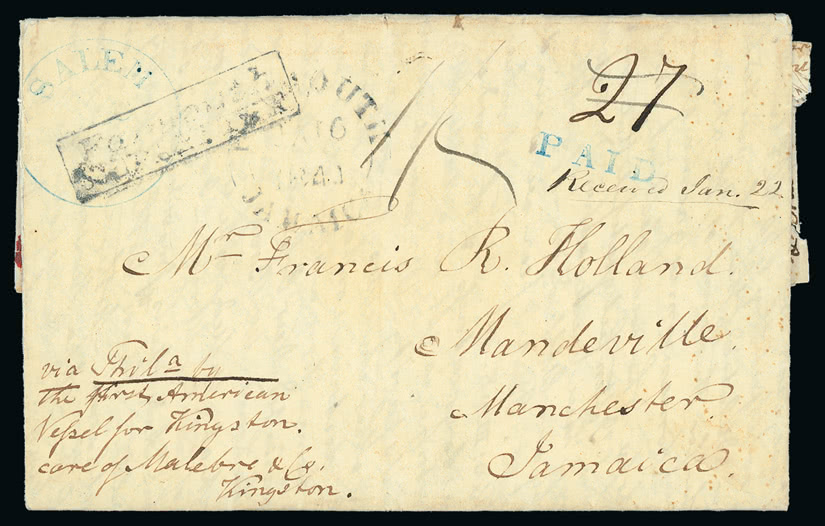 SALEM
FORWARDED
27
PAID
Received Jan. 22
Mr Francis R. Holland.
Mandeville.
Manchester.
Jamaica.
via Phila by
the first American
Vessel for Kingston.
care of Malebre & Co.
Kingston.